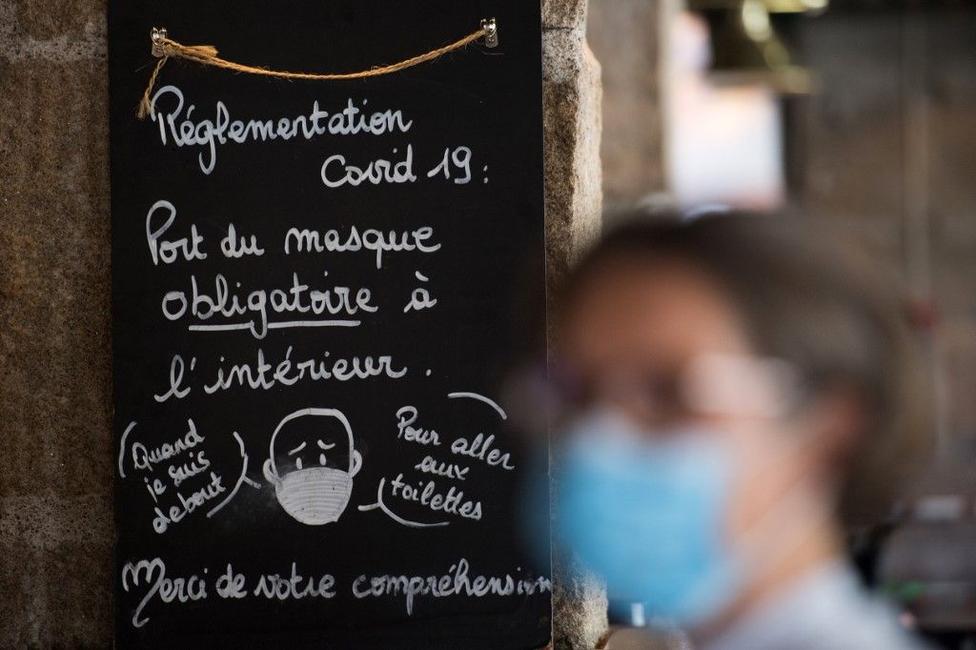 Réglementation
Covid 19 :
Port du masque
obligatoire à
l'intérieur.
Quand
je suis
debout
Pour aller
aux
toilettes
Merci de votre compréhension